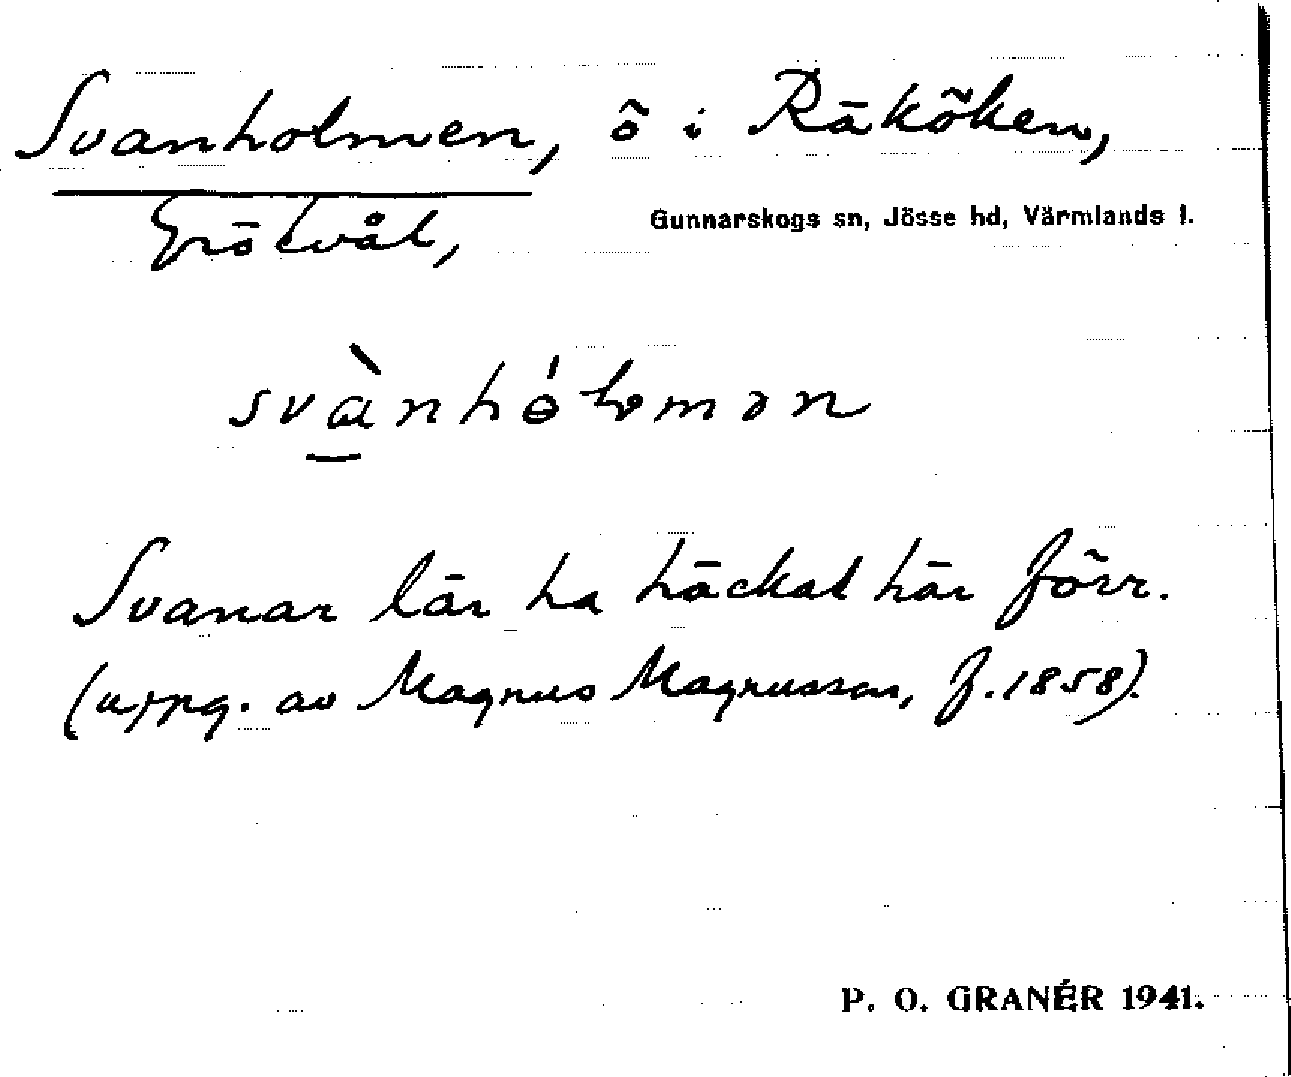 Svanholmen, ö i Räköken,
Grötvål, Gunnarskogs sn, Jösse hd, Värmlands l.
Svanar lär ha häckat här förr.
(uppg. av Magnus Magnusson, f. 1858).
P. O. GRANÉR 1941.